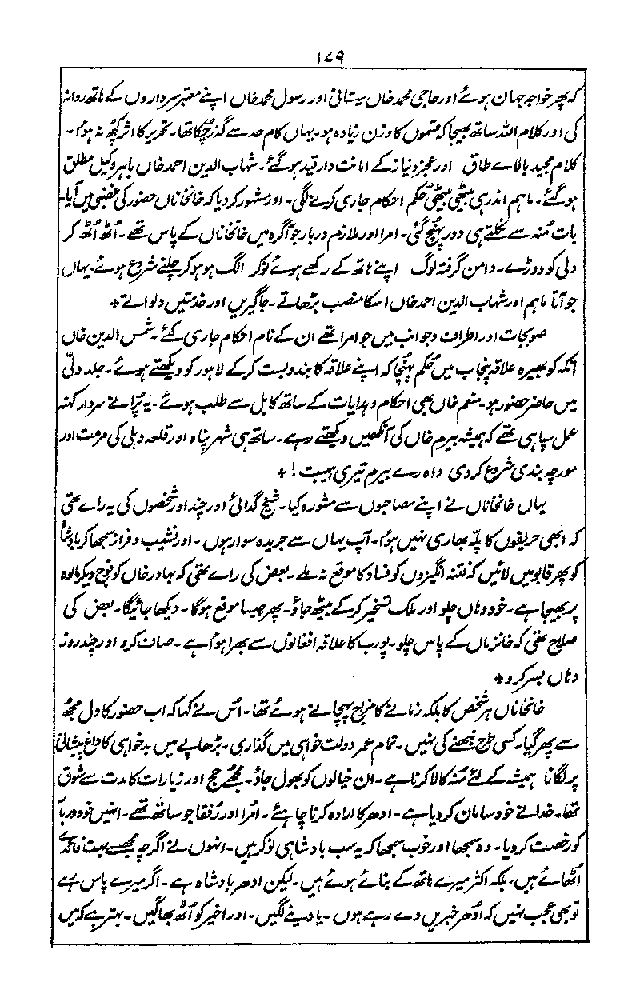 ۱۷۹
کہ پھر خواجہ جہان ہوئے اور حاجی محمد خاں سیستانی اور رسول محمد خاں اپنے معتبر سرداروں کے ہاتھ روانہ
کی اور کلام اللہ ساتھ بھیجا کہ قسموں کا وزن زیادہ ہو۔ یہاں کام حد سے گذر چکا تھا۔ تحریر کا اثر کچھ نہ ہوا۔
کلام مجید بالاے طاق اور عجز و نیاز کے امانت دار قید ہو گئے۔ شہاب الدین احمد خاں باہر وکیل مطلق
ہو گئے۔ ماہم اندر ہی بیٹھی بیٹھی حکم احکام جاری کرنے لگی۔ اور مشہور کر دیا کہ خانخاناں حضور کی غضبی میں آیا۔
بات مُنہ سے نکلتے ہی دور پہنچ گئی۔ امرا اور ملازم دربار جو آگرہ میں خانخاناں کے پاس تھے۔ اُٹھ اُٹھ کر
دلی کو دوڑے۔ دامن گرفتہ لوگ اپنے ہاتھ کے رکھے ہوئے نوکر الگ ہو ہو کر چلنے شروع ہوئے۔ یہاں
جو آتا ماہم اور شہاب الدین احمد خاں اسکا منصب بڑھاتے۔ جاگیریں اور خدمتیں دلواتے ٭
صوبجات اور اطراف و جوانب میں جو امرا تھے ان کے نام احکام جاری کئے۔ شمس الدین خاں
اتکہ کو بھیرہ علاقہ پنجاب میں حکم پہنچا کہ اپنے علاقہ کا بندوبست کر کے لاہور کو دیکھتے ہوئے۔ جلد دلی
میں حاضر حضور ہو۔ منعم خاں بھی احکام و ہدایات کے ساتھ کابل سے طلب ہوئے۔ یہ پرانے سردار کہنہ
عمل سپاہی تھے کہ ہمیشہ بیرم خاں کی آنکھیں دیکھتے رہے۔ ساتھ ہی شہر پناہ اور قلعہ دہلی کی مرمت اور
مورچہ بندی شروع کر دی واہ رے بیرم تیری ہیبت! ٭
یہاں خانخاناں نے اپنے مصاحبوں سے مشورہ کیا۔ شیخ گدائی اور چند اور شخصوں کی یہ راے تھی
کہ ابھی حریفوں کا پلہ بھاری نہیں ہوا۔ آپ یہاں سے جریدہ سوار ہوں۔ اور نشیب و فراز سمجھا کر بادشاہ
کو پھر قابو میں لائیں کہ فتنہ انگیزوں کو فساد کا موقع نہ ملے۔ بعض کی راے تھی کہ بہادر خاں کو فوج دیکر مالوہ
پر بھیجا ہے۔ خود وہاں چلو اور ملک تسخیر کر کے بیٹھ جاؤ۔ پھر جیسا موقع ہوگا۔ دیکھا جائیگا۔ بعض کی
صلاح تھی کہ خانزماں کے پاس چلو۔ پورب کا علاقہ افغانوں سے بھرا ہوا ہے۔ صاف کرو اور چند روز
وہاں بسر کرو ٭
خانخاناں ہر شخص کا بلکہ زمانے کا مزاج پہچانے ہوئے تھا۔ اُس نے کہا کہ اب حضور کا دل مجھ
سے پھر گیا۔ کسی طرح نبھنے کی نہیں۔ تمام عمر دولت خواہی میں گذاری۔ بڑھاپے میں بدخواہی کا داغ پیشانی
پر لگانا ہمیشہ کے لئے مُنہ کالا کرنا ہے۔ ان خیالوں کو بھول جاؤ۔ مجھے حج اور زیارات کا مدت سے شوق
تھا۔ خدا نے خود سامان کر دیا ہے۔ ادھر کا ارادہ کرنا چاہئے۔ اُمرا اور رفقا جو ساتھ تھے۔ انہیں خود دربار
کو رخصت کر دیا۔ وہ سمجھا اور خوب سمجھا کہ یہ سب بادشاہی نوکر ہیں۔ انہوں نے اگرچہ مجھسے بہت فائدے
اُٹھائے ہیں۔ بلکہ اکثر میرے ہاتھ کے بنائے ہوئے ہیں۔ لیکن ادھر بادشاہ ہے۔ اگر میرے پاس رہے
تو بھی عجب نہیں کہ اُدھر خبریں دے رہے ہوں۔ یا دینے لگیں۔ اور اخیر کو اُٹھ بھاگیں۔ بہتر ہے کہ میں